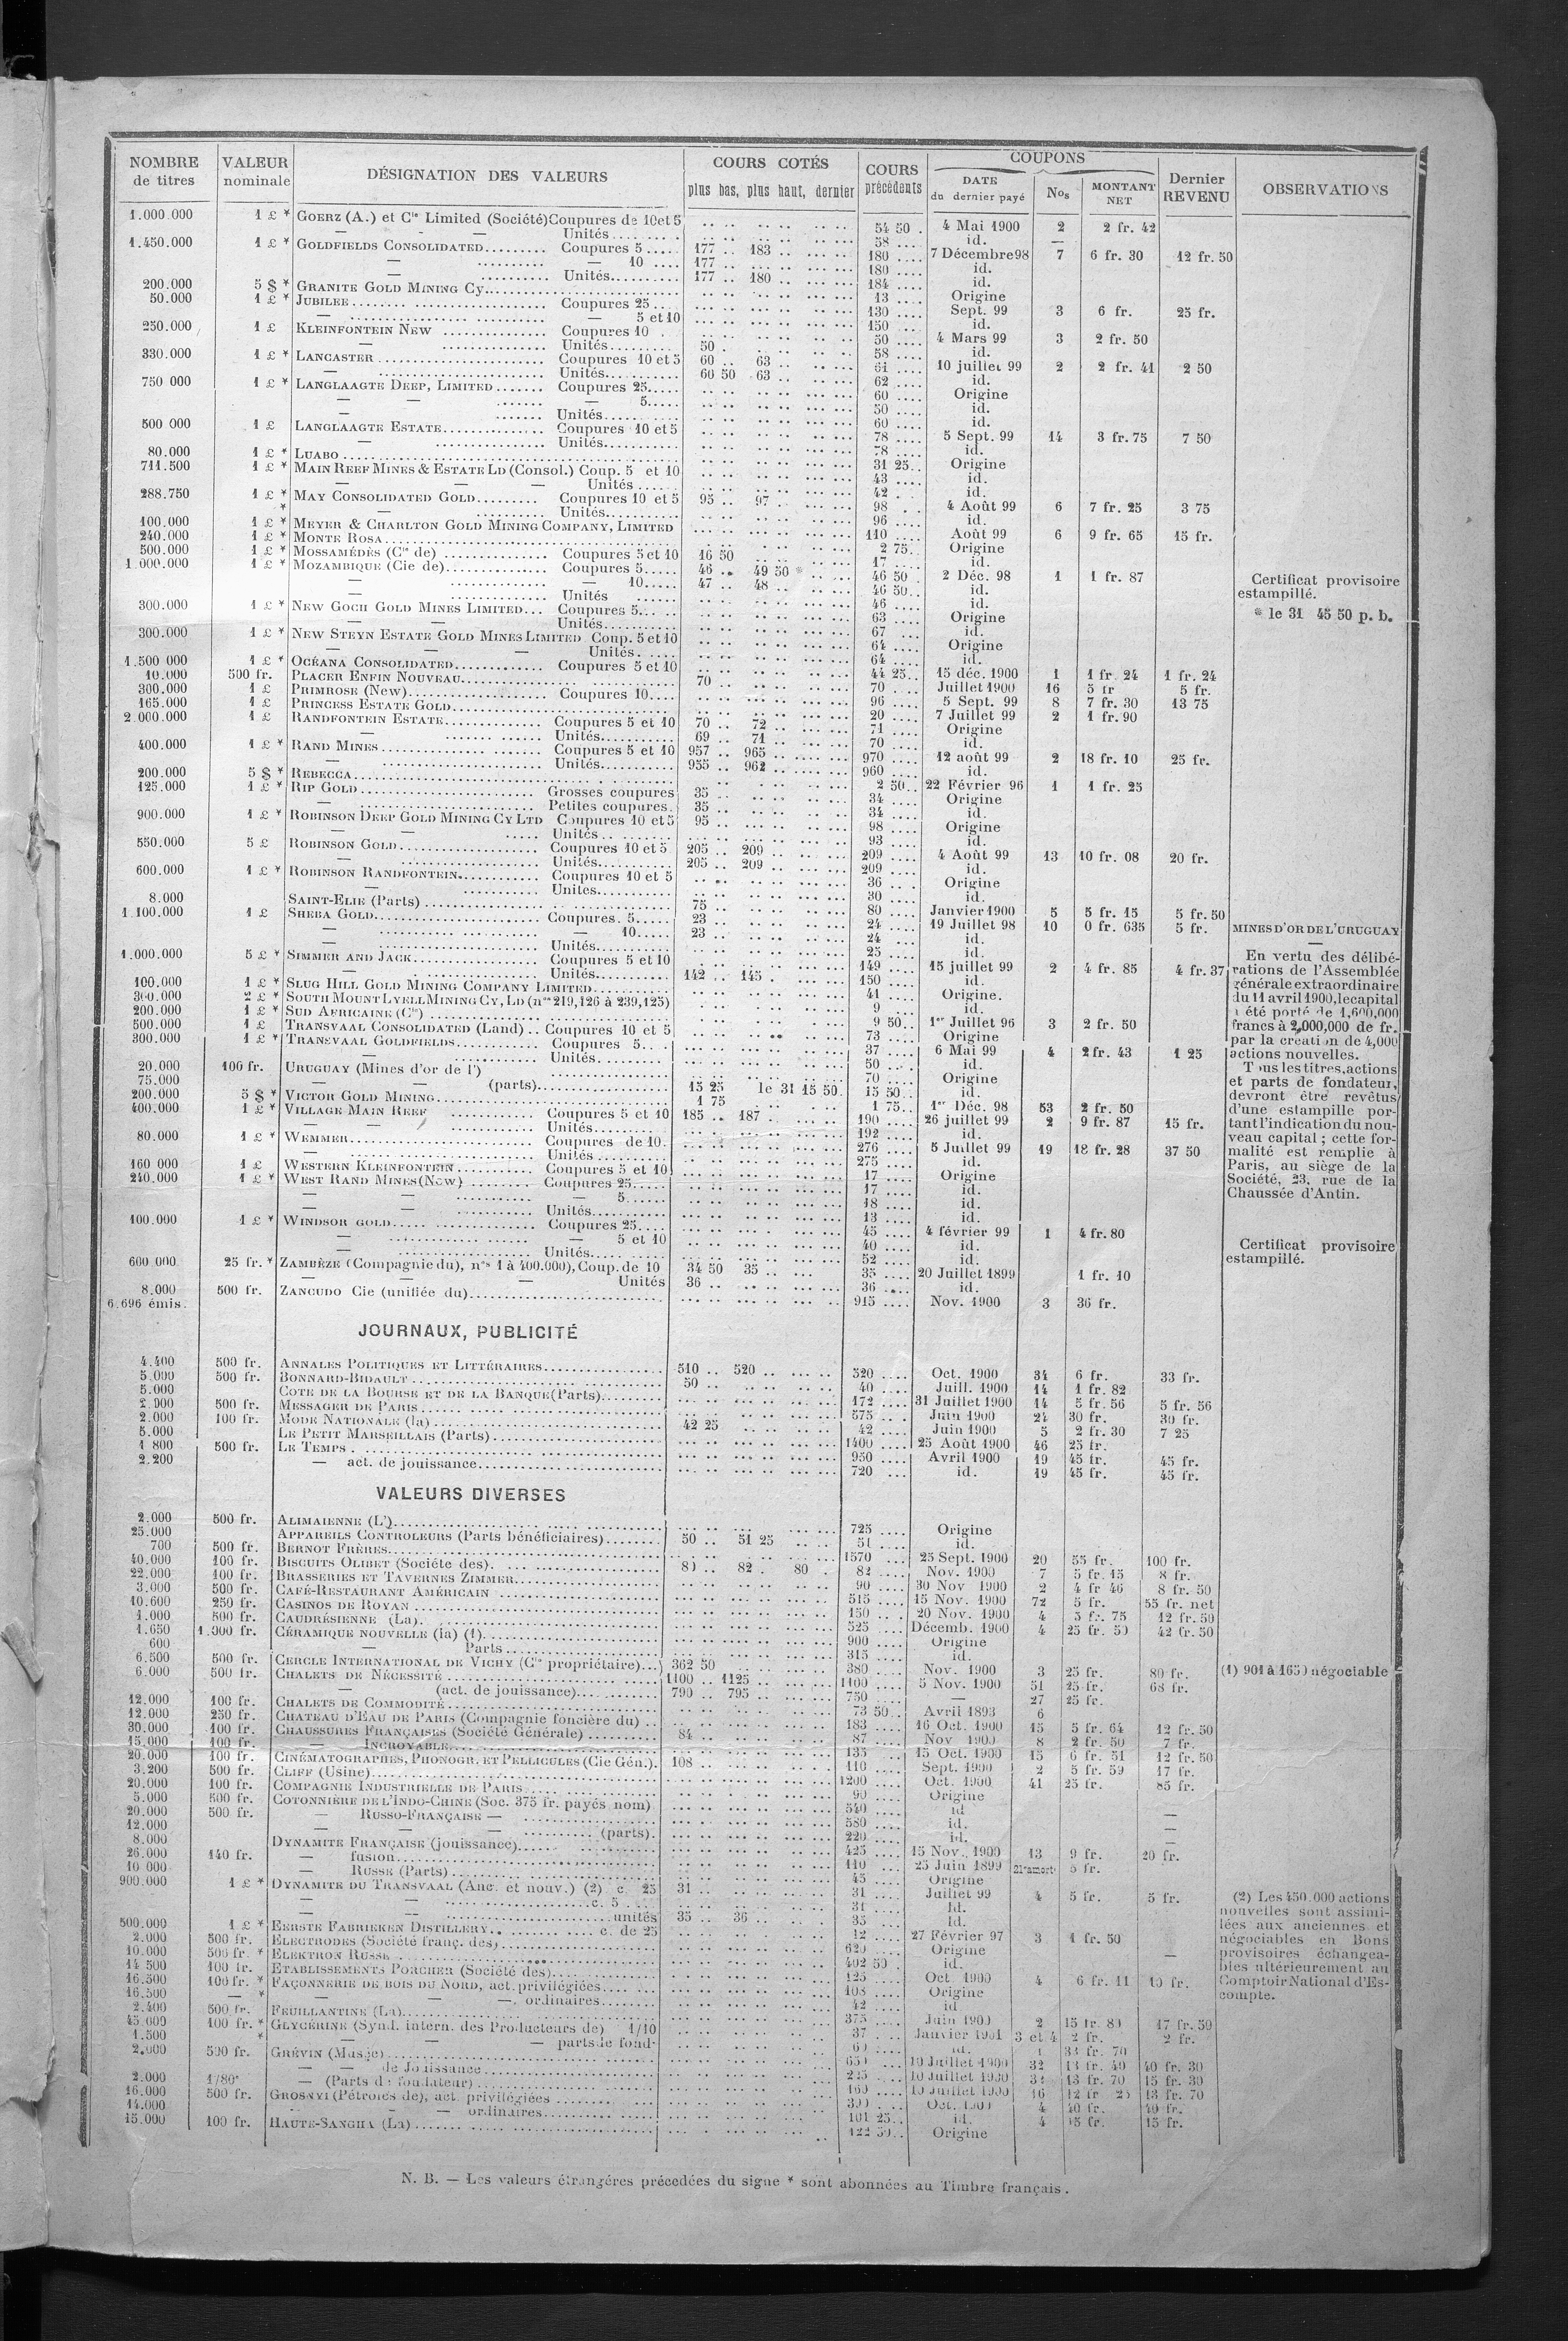 NOMBRE de titres | VALEUR nominale | DÉSIGNATION DES VALEURS | COURS COTÉS plus bas, plus haut, dernier | COURS précédents | COUPONS DATE du dernier payé | Nos | MONTANT NET | Dernier REVENU | OBSERVATIONS
1.000.000 1 £ * GOERZ (A.) et Cie Limited (Société) Coupures de 10 et 5 54 50 4 Mai 1900 2 2 fr. 42
— - — Unités 58 id. —
1.450.000 1 £ * GOLDFIELDS CONSOLIDATED Coupures 5 177 183 180 7 Décembre 98 7 6 fr. 30 12 fr. 50
— — 10 177 180 id.
— Unités 177 180 184 id.
200.000 5 $ * GRANITE GOLD MINING Cy 13 Origine
50.000 1 £ * JUBILEE Coupures 25 130 Sept. 99 3 6 fr. 25 fr.
— — 5 et 10 150 id.
250.000 1 £ KLEINFONTEIN NEW Coupures 10 50 4 Mars 99 3 2 fr. 50
— Unités 50 58 id.
330.000 1 £ * LANCASTER Coupures 10 et 5 60 63 61 10 juillet 99 2 2 fr. 41 2 50
— Unités 60 50 63 62 id.
750 000 1 £ * LANGLAAGTE DEEP, LIMITED Coupures 25 60 Origine
— — — 5 50 id.
— Unités 60 id.
500 000 1 £ LANGLAAGTE ESTATE Coupures 10 et 5 78 5 Sept. 99 14 3 fr. 75 7 50
— Unités 78 id.
80.000 1 £ * LUABO 31 25 Origine
711.500 1 £ * MAIN REEF MINES & ESTATE LD (Consol.) Coup. 5 et 10 43 id.
— — — Unités 42 id.
288.750 1 £ * MAY CONSOLIDATED GOLD Coupures 10 et 5 95 97 98 4 Août 99 6 7 fr. 25 3 75
* — Unités 96 id.
100.000 1 £ * MEYER & CHARLTON GOLD MINING COMPANY, LIMITED 110 Août 99 6 9 fr. 65 15 fr.
240.000 1 £ * MONTE ROSA 2 75 Origine
500.000 1 £ * MOSSAMÉDÈS (Cie de) Coupures 5 et 10 16 50 17 id.
1.000.000 1 £ * MOZAMBIQUE (Cie de) Coupures 5 46 49 50 * 46 50 2 Déc. 98 1 1 fr. 87 Certificat provisoire
— — 10 47 48 46 50 id. estampillé.
— Unités 46 id. * le 31 45 50 p. b.
300.000 1 £ * NEW GOCH GOLD MINES LIMITED Coupures 5 63 Origine
— — Unités 67 id.
300.000 1 £ * NEW STEYN ESTATE GOLD MINES LIMITED Coup. 5 et 10 64 Origine
— — — Unités 64 id.
1.500 000 1 £ * OCÉANA CONSOLIDATED Coupures 5 et 10 44 25 15 déc. 1900 1 1 fr. 24 1 fr. 24
10.000 500 fr. PLACER ENFIN NOUVEAU 70 70 Juillet 1900 16 5 fr 5 fr.
300.000 1 £ PRIMROSE (New) Coupures 10 96 5 Sept. 99 8 7 fr. 30 13 75
165.000 1 £ PRINCESS ESTATE GOLD 20 7 Juillet 99 2 1 fr. 90
2.000.000 1 £ RANDFONTEIN ESTATE Coupures 5 et 10 70 72 71 Origine
— Unités 69 71 70 id.
400.000 1 £ * RAND MINES Coupures 5 et 10 957 965 970 12 août 99 2 18 fr. 10 25 fr.
— Unités 955 962 960 id.
200.000 5 $ * REBECCA 2 50 22 Février 96 1 1 fr. 25
125.000 1 £ * RIP GOLD Grosses coupures 35 34 Origine
— Petites coupures 35 34 id.
900.000 1 £ * ROBINSON DEEP GOLD MINING CY LTD Coupures 10 et 5 95 98 Origine
— — Unités 93 id.
550.000 5 £ ROBINSON GOLD Coupures 10 et 5 205 209 209 4 Août 99 13 10 fr. 08 20 fr.
— Unités 205 209 209 id.
600.000 1 £ * ROBINSON RANDFONTEIN Coupures 10 et 5 36 Origine
— Unités 30 id.
8.000 SAINT-ELIE (Parts) 75 80 Janvier 1900 5 5 fr. 15 5 fr. 50
1.100.000 1 £ SHEBA GOLD Coupures 5 23 24 19 Juillet 98 10 0 fr. 635 5 fr. MINES D'OR DE L'URUGUAY
— — 10 23 24 id. —
— Unités 25 id. En vertu des délibé-
1.000.000 5 £ * SIMMER AND JACK Coupures 5 et 10 149 15 juillet 99 2 4 fr. 85 4 fr. 37 rations de l'Assemblée
— Unités 142 145 150 id. générale extraordinaire
100.000 1 £ * SLUG HILL GOLD MINING COMPANY LIMITED 41 Origine. du 11 avril 1900, le capital
300.000 2 £ * SOUTH MOUNT LYELL MINING CY, LD (nos 219,126 à 239,125) 9 id. a été porté de 1,600,000
200.000 1 £ * SUD AFRICAINE (Cie) 9 50 1er Juillet 96 3 2 fr. 50 francs à 2,000,000 de fr.
500.000 1 £ TRANSVAAL CONSOLIDATED (Land) Coupures 10 et 5 73 Origine par la création de 4,000
300.000 1 £ * TRANSVAAL GOLDFIELDS Coupures 5 37 6 Mai 99 4 2 fr. 43 1 25 actions nouvelles.
— Unités 50 id. Tous les titres, actions
20.000 100 fr. URUGUAY (Mines d'or de l') 70 Origine et parts de fondateur,
75.000 — — (parts) 15 25 le 31 15 50 15 50 id. devront être revêtus
200.000 5 $ * VICTOR GOLD MINING 1 75 1 75 1er Déc. 98 53 2 fr. 50 d'une estampille por-
400.000 1 £ * VILLAGE MAIN REEF Coupures 5 et 10 185 187 190 26 juillet 99 2 9 fr. 87 15 fr. tant l'indication du nou-
— Unités 192 id. veau capital ; cette for-
80.000 1 £ * WEMMER Coupures de 10 276 5 Juillet 99 19 18 fr. 28 37 50 malité est remplie à
— Unités 275 id. Paris, au siège de la
160 000 1 £ WESTERN KLEINFONTEIN Coupures 5 et 10 17 Origine Société, 23, rue de la
240.000 1 £ * WEST RAND MINES (New) Coupures 25 17 id. Chaussée d'Antin.
— — — 5 18 id.
— — Unités 13 id.
100.000 1 £ * WINDSOR GOLD Coupures 25 45 4 février 99 1 4 fr. 80
— — 5 et 10 40 id. Certificat provisoire
— Unités 52 id. estampillé.
600 000 25 fr. * ZAMBÈZE (Compagnie du), nos 1 à 400.000), Coup. de 10 34 50 35 35 20 Juillet 1899 1 fr. 10
— — — Unités 36 36 id.
8.000 500 fr. ZANCUDO Cie (unifiée du) 915 Nov. 1900 3 36 fr.
6.696 émis.
JOURNAUX, PUBLICITÉ
4.400 500 fr. ANNALES POLITIQUES ET LITTÉRAIRES 510 520 520 Oct. 1900 34 6 fr. 33 fr.
5.000 500 fr. BONNARD-BIDAULT 50 40 Juill. 1900 14 1 fr. 82
5.000 COTE DE LA BOURSE ET DE LA BANQUE (Parts) 172 31 Juillet 1900 14 5 fr. 56 5 fr. 56
2.000 500 fr. MESSAGER DE PARIS 575 Juin 1900 24 30 fr. 30 fr.
2.000 100 fr. MODE NATIONALE (la) 42 25 42 Juin 1900 5 2 fr. 30 7 25
5.000 LE PETIT MARSEILLAIS (Parts) 1400 25 Août 1900 46 25 fr.
1 800 500 fr. LE TEMPS 950 Avril 1900 19 45 fr. 45 fr.
2.200 — act. de jouissance 720 id. 19 45 fr. 45 fr.
VALEURS DIVERSES
2.000 500 fr. ALIMAIENNE (L') 725 Origine
25.000 APPAREILS CONTROLEURS (Parts bénéficiaires) 50 51 25 51 id.
700 500 fr. BERNOT FRÈRES 1570 25 Sept. 1900 20 55 fr. 100 fr.
40.000 100 fr. BISCUITS OLIBET (Société des) 80 82 80 82 Nov. 1900 7 5 fr. 15 8 fr.
22.000 100 fr. BRASSERIES ET TAVERNES ZIMMER 90 30 Nov 1900 2 4 fr 46 8 fr. 50
3.000 500 fr. CAFÉ-RESTAURANT AMÉRICAIN 515 15 Nov. 1900 72 5 fr. 55 fr. net
10.600 250 fr. CASINOS DE ROYAN 150 20 Nov. 1900 4 3 fr. 75 12 fr. 50
1.000 500 fr. CAUDRÉSIENNE (La) 525 Décemb. 1900 4 25 fr. 50 42 fr. 50
1.650 1.000 fr. CÉRAMIQUE NOUVELLE (la) (1) 900 Origine
600 — Parts 315 id.
6.500 500 fr. CERCLE INTERNATIONAL DE VICHY (Cie propriétaire) 362 50 380 Nov. 1900 3 25 fr. 80 fr. (1) 901 à 1650 négociable
6.000 500 fr. CHALETS DE NÉCESSITÉ 1100 1125 1100 5 Nov. 1900 51 25 fr. 68 fr.
— (act. de jouissance) 790 795 750 — 27 25 fr.
12.000 100 fr. CHALETS DE COMMODITÉ 73 50 Avril 1893 6
12.000 250 fr. CHATEAU D'EAU DE PARIS (Compagnie foncière du) 183 16 Oct. 1900 15 5 fr. 64 12 fr. 50
30.000 100 fr. CHAUSSURES FRANÇAISES (Société Générale) 84 87 Nov 1900 8 2 fr. 50 7 fr.
15.000 100 fr. — INCROYABLE 135 15 Oct. 1900 15 6 fr. 51 12 fr. 50
20.000 100 fr. CINÉMATOGRAPHES, PHONOGR. ET PELLICULES (Cie Gén.) 108 110 Sept. 1900 2 5 fr. 59 17 fr.
3.200 500 fr. CLIFF (Usine) 1200 Oct. 1900 41 25 fr. 85 fr.
20.000 100 fr. COMPAGNIE INDUSTRIELLE DE PARIS 90 Origine
5.000 500 fr. COTONNIÈRE DE L'INDO-CHINE (Soc. 375 fr. payés nom) 540 id —
20.000 500 fr. — RUSSO-FRANÇAISE — 580 id. —
12.000 — — (parts) 220 id. —
8.000 DYNAMITE FRANÇAISE (jouissance) 425 15 Nov. 1900 13 9 fr. 20 fr.
26.000 140 fr. — fusion 110 25 Juin 1899 21e amort. 5 fr.
10 000 — RUSSE (Parts) 45 Origine
900.000 1 £ * DYNAMITE DU TRANSVAAL (Anc. et nouv.) (2) c. 25 31 31 Juillet 99 4 5 fr. 5 fr. (2) Les 450.000 actions
— — c. 5 31 Id. nouvelles sont assimi-
— — unités 35 36 35 Id. lées aux anciennes et
500.000 1 £ * EERSTE FABRIEKEN DISTILLERY c. de 25 12 27 Février 97 3 1 fr. 50 négociables en Bons
2.000 500 fr. ÉLECTRODES (Société franç. des) 620 Origine — provisoires échangea-
10.000 500 fr. * ELEKTRON RUSSE 402 50 id. bles ultérieurement au
14 500 100 fr. ETABLISSEMENTS PORCHER (Société des) 125 Oct 1900 4 6 fr. 11 10 fr. Comptoir National d'Es-
16.500 100 fr. * FAÇONNERIE DE BOIS DU NORD, act. privilégiées 108 Origine compte.
16.500 — * — — ordinaires 42 id
2.400 500 fr. FEUILLANTINE (La) 375 Juin 1900 2 15 fr. 80 17 fr. 50
45.000 100 fr. * GLYCÉRINE (Synd. intern. des Producteurs de) 1/10 37 Janvier 1901 3 et 4 2 fr. 2 fr.
1.500 * — — — parts de fond. id. 1 33 fr. 70
2.000 500 fr. GRÉVIN (Musée) 650 10 Juillet 1900 32 13 fr. 40 40 fr. 30
— — de Jouissance 10 Juillet 1900 13 fr. 70 15 fr. 30
2.000 1/80e — (Parts de fondateur) 160 10 Juillet 1900 16 13 fr. 70
16.000 500 fr. GROSNYI (Pétroles de), act. privilégiées Oct. 1900 4 40 fr. 40 fr.
14.000 — — ordinaires 101 25 id. 4 15 fr. 15 fr.
15.000 100 fr. HAUTE-SANGHA (La) 122 50 Origine
N. B. — Les valeurs étrangéres précedées du signe * sont abonnées au Timbre français.